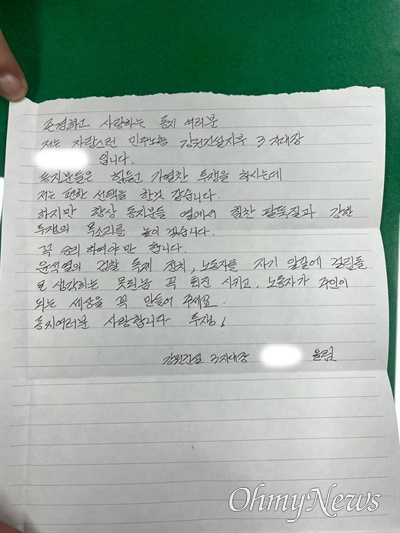 존경하고 사랑하는 동지 여러분
저는 자랑스런 민주노총 강원건설지부 3지대장
입니다.
동지분들은 힘들고 가열찬 투쟁을 하시는데
저는 편한 선택을 한것 같습니다
하지만 항상 동지분들 옆에서 힘찬 팔뚝질과 강한
투쟁의 목소리를 높이 겠습니다.
꼭 승리 하여야만 합니다.
윤석열의 검찰 독재 정치, 노동자를 자기 앞길에 걸림돌
로 생각하는 못된놈 꼭 퇴진 시키고, 노동자가 주인이
되는 세상을 꼭 만들어 주세요.
동지여러분 사랑합니다 투쟁!
강원건설 3지대장 올림
OhmyNews